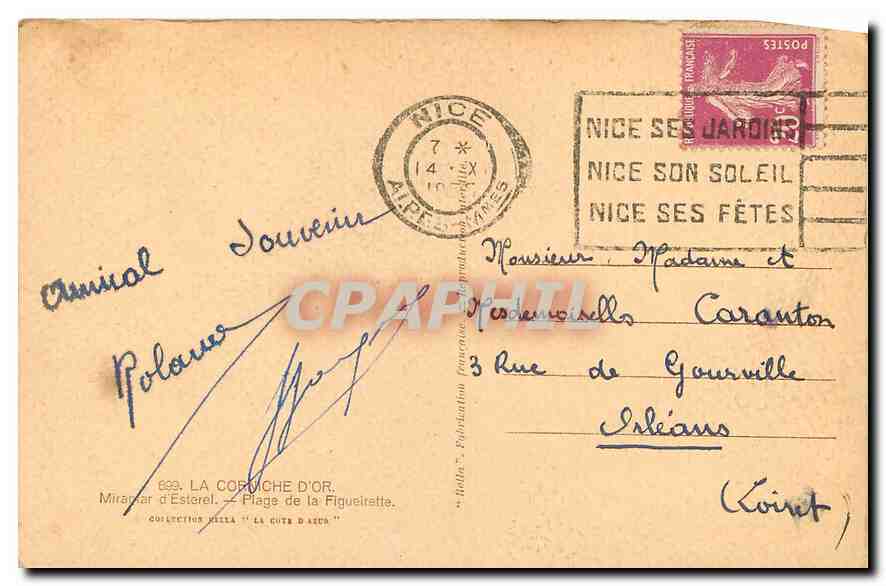 NICE
7 *
14 X
ALPES MMES
NICE SES JARDINS
NICE SON SOLEIL
NICE SES FÊTES
POSTES
REPUBLIQUE FRANÇAISE
20c
Amical Souvenir
Roland
Monsieur, Madame et
Mesdemoiselles Caranton
3 Rue de Gourville
Orléans
(Loiret)
CPAPHIL
"Rella". Fabrication française. Reproduction
699. LA CORNICHE D'OR.
Miramar d'Esterel. — Plage de la Figueirette.
COLLECTION RELLA "LA COTE D'AZUR"